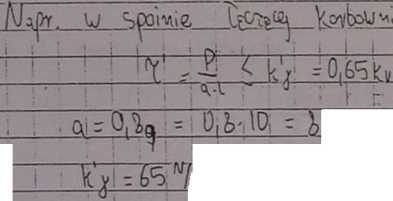 Napr. w spoinie łączącej korbowni
τ' = P/a·l ≤ k'y = 0,65 k
a = 0,8g = 0,8·10 = 8
k'y = 65 N/